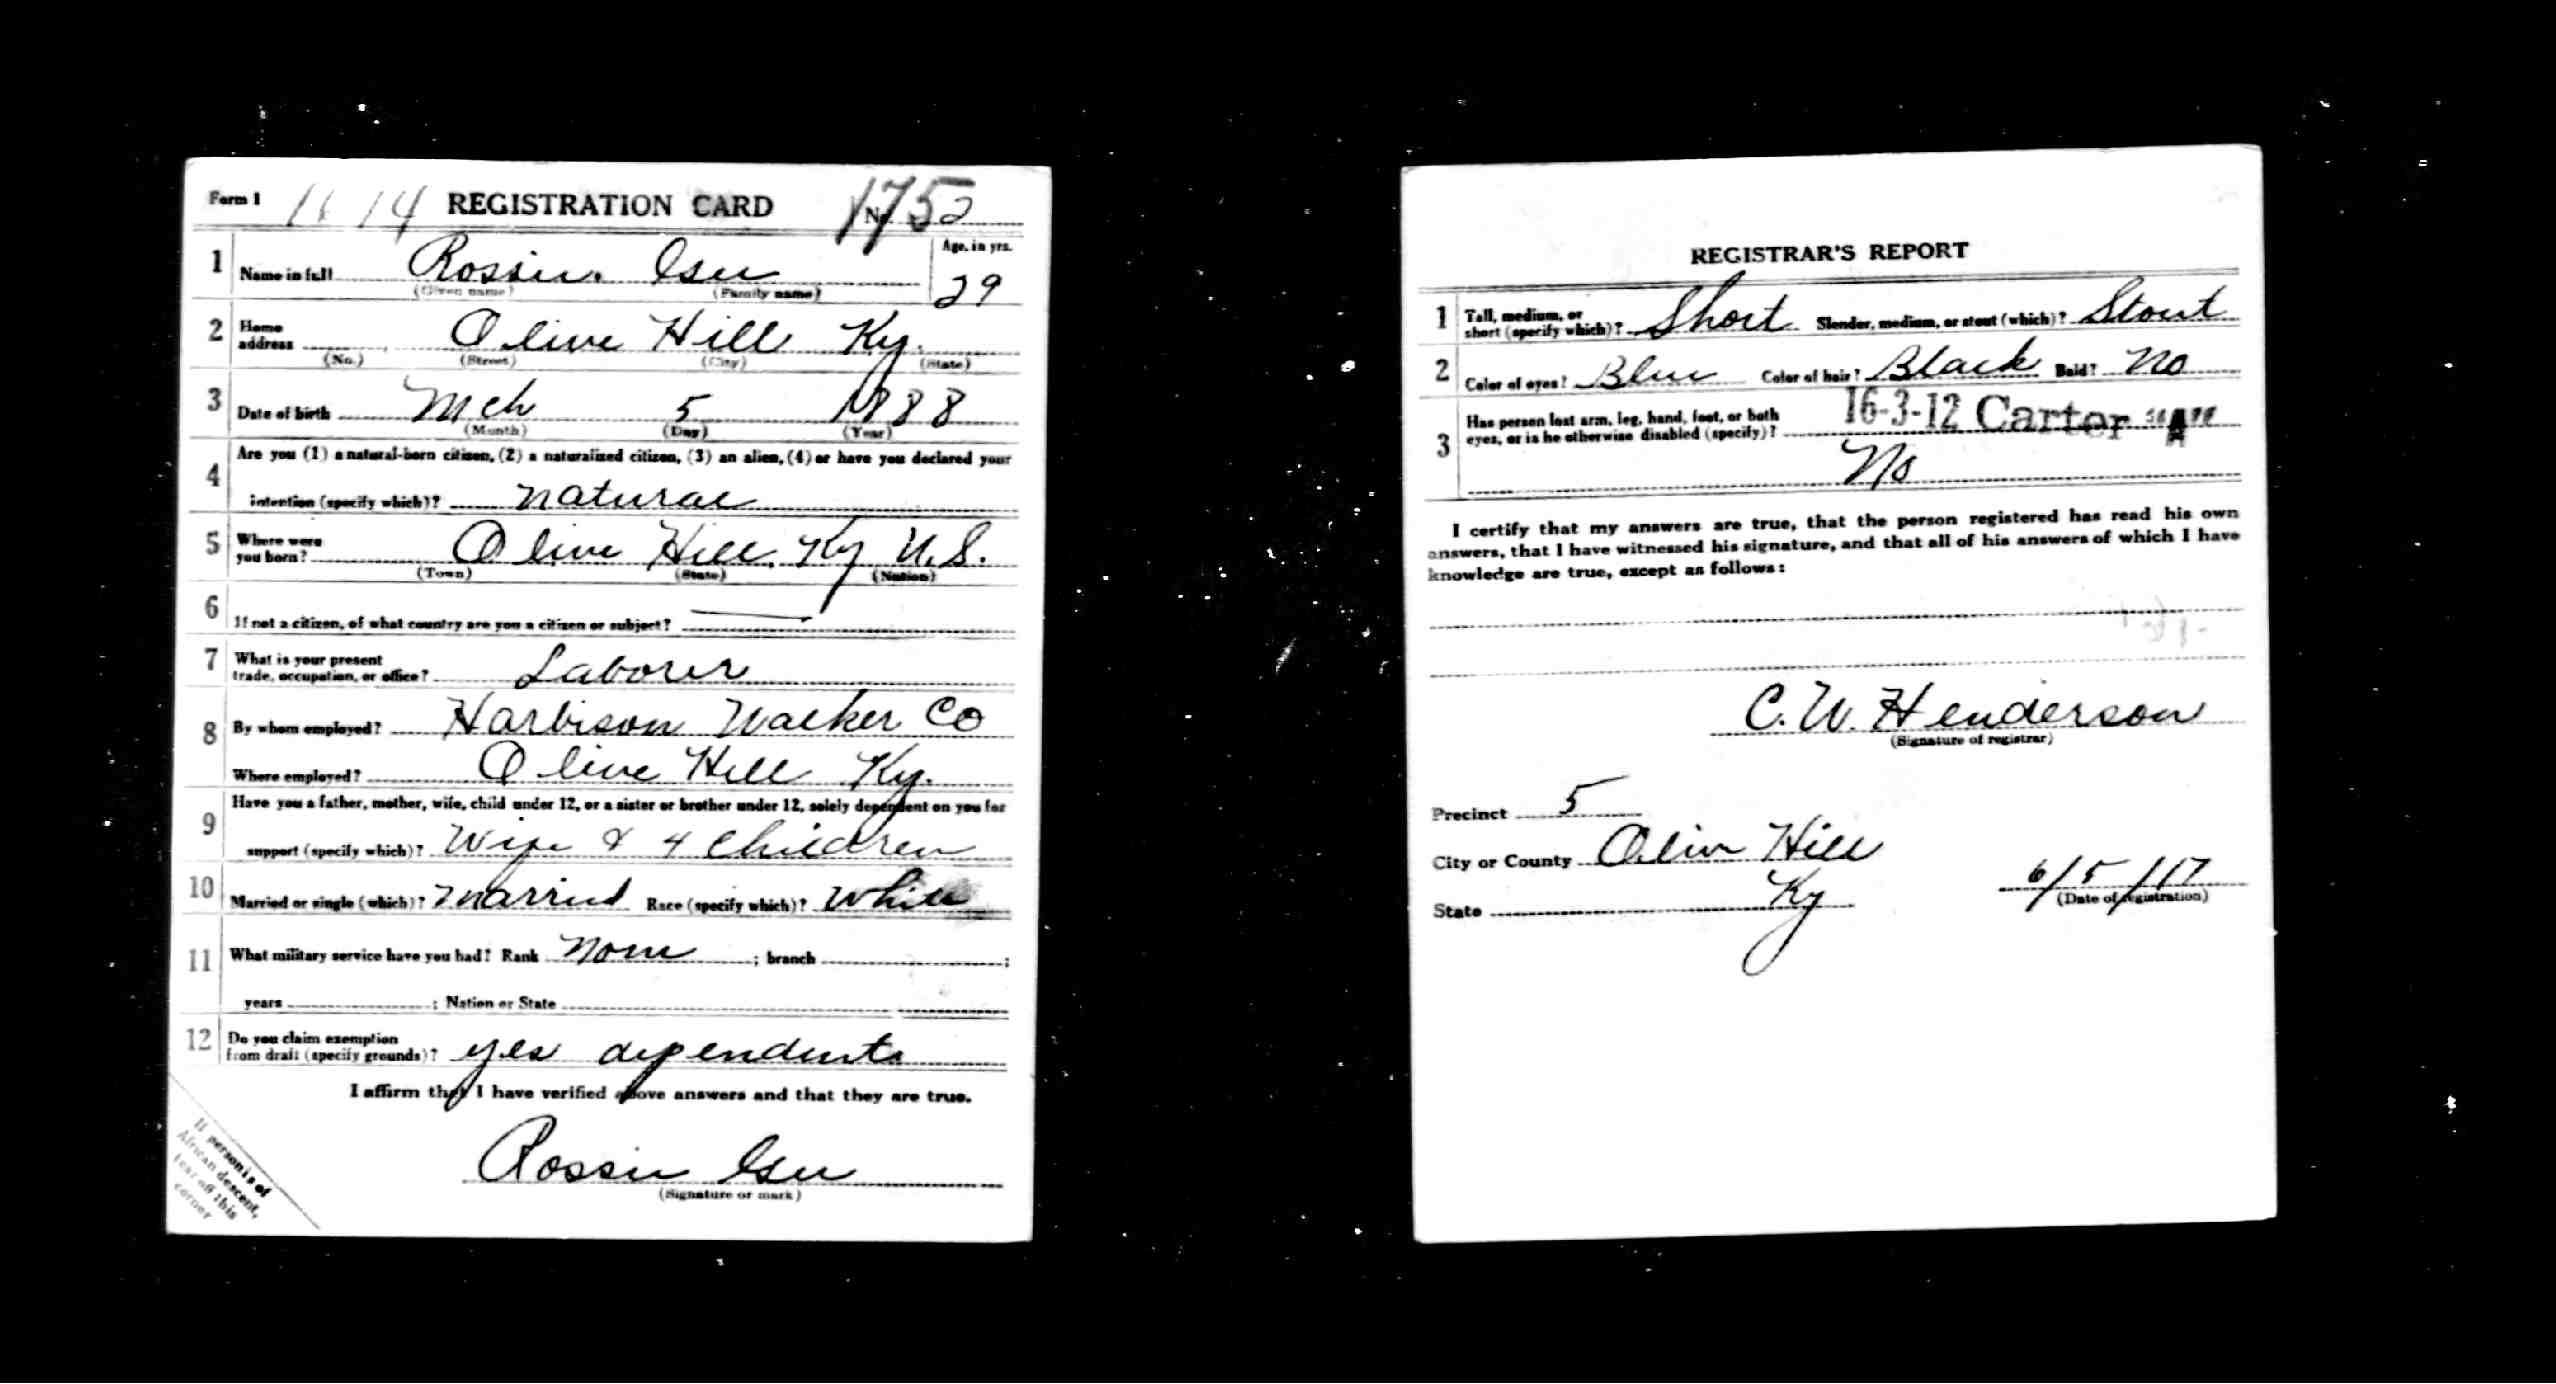 Form 1 REGISTRATION CARD No. 1752
1 Name in full Rossie. (Given name) (Family name) Age, in yrs. 29
2 Home address (No.) (Street) Olive Hill (City) Ky. (State)
3 Date of birth Mch (Month) 5 (Day) 1888 (Year)
4 Are you (1) a natural-born citizen, (2) a naturalized citizen, (3) an alien, (4) or have you declared your
intention (specify which)? natural
5 Where were you born? Olive Hill, (Town) Ky (State) U.S. (Nation)
6 If not a citizen, of what country are you a citizen or subject? ——
7 What is your present trade, occupation, or office? Laborer
8 By whom employed? Harbison Walker Co
Where employed? Olive Hill Ky.
9 Have you a father, mother, wife, child under 12, or a sister or brother under 12, solely dependent on you for
support (specify which)? Wife & 4 Children
10 Married or single (which)? Married Race (specify which)? White
11 What military service have you had? Rank None ; branch ;
years ; Nation or State
12 Do you claim exemption from draft (specify grounds)? yes dependents
I affirm that I have verified above answers and that they are true.
Rossie
(Signature or mark)
If person is of
African descent,
tear off this
corner
REGISTRAR'S REPORT
1 Tall, medium, or short (specify which)? Short Slender, medium, or stout (which)? Stout
2 Color of eyes? Blue Color of hair? Black Bald? No
3 Has person lost arm, leg, hand, foot, or both eyes, or is he otherwise disabled (specify)? 16-3-12 Carter
No
I certify that my answers are true, that the person registered has read his own
answers, that I have witnessed his signature, and that all of his answers of which I have
knowledge are true, except as follows:
C. W. Henderson
(Signature of registrar)
Precinct 5
City or County Olive Hill
State Ky 6/5/17
(Date of registration)